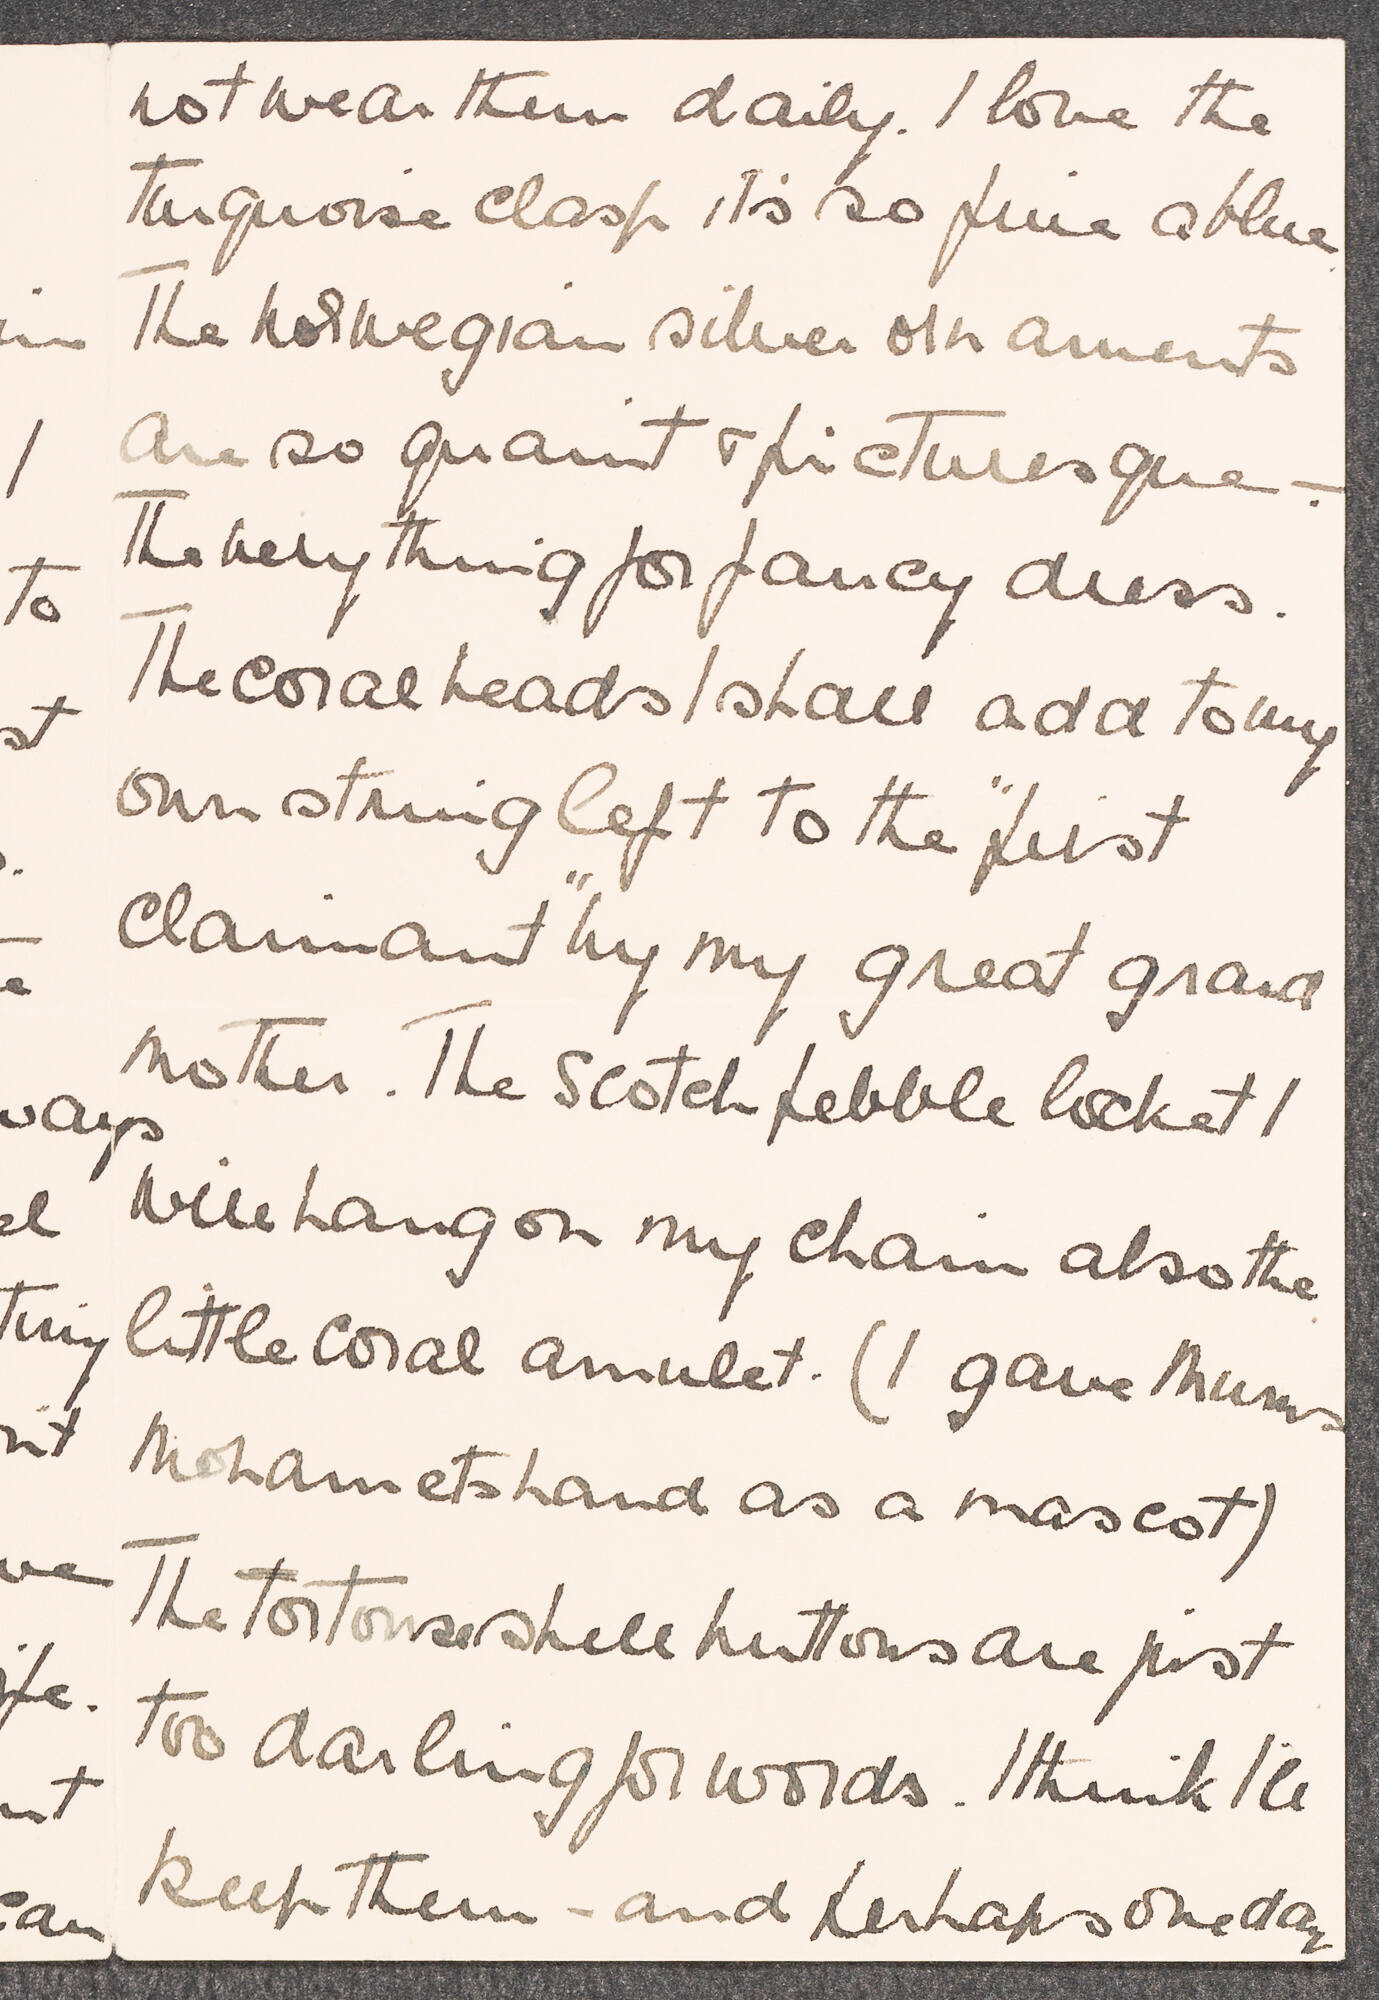 not wear them daily. I love the
turquoise clasp it's so fine a blue.
The norwegian silver ornaments
are so quaint & picturesque –.
The very thing for fancy dress.
The coral heads I shall add to my
own string left to the "first
claimant" by my great grand
mother. The Scotch pebble locket I
will hang on my chain also the
little coral amulet. (I gave Mums
Mohamets hand as a mascot)
The tortoise shell buttons are just
too darling for words. I think I'll
keep them - and perhaps one day
I
to
st
ways
ve
can